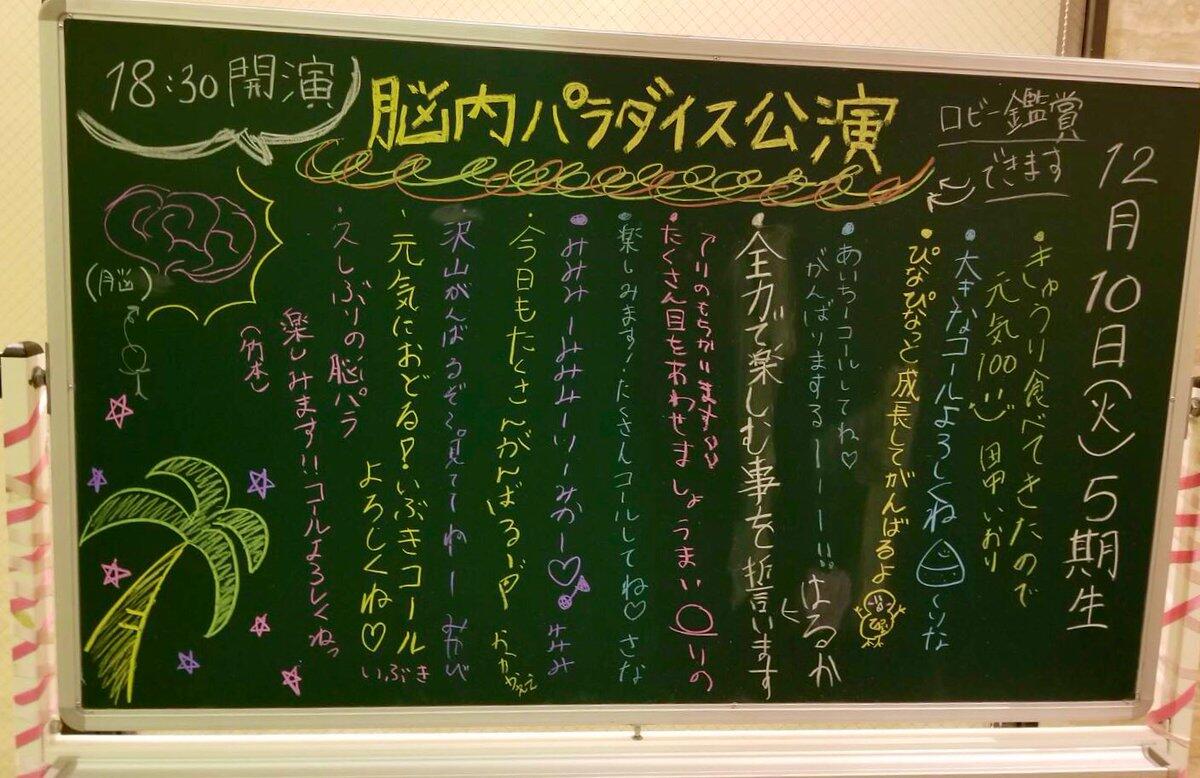 12月10日(火) 5期生
18:30開演
脳内パラダイス公演
ロビー鑑賞
できます
・きゅうり食べてきたので
元気100 田中いおり
・大きなコールよろしくね くりな
・ぴなぴなっと成長してがんばるよ
・あいちーコールしてね♡
がんばりまするーーー!! はるか
・全力で楽しむ事を誓います
アリのもちかります♡♡
・たくさん目をあわせましょうまい りの
・楽しみます!たくさんコールしてね♡ さな
・みみみーみみみーりーみかー♡ みみ
・今日もたくさんがんばるぞ!
・沢山がんばるぞ〜見ててねー
・元気におどる!いぶきコール
よろしくね♡ いぶき
・久しぶりの脳パラ
楽しみます!!コールよろしくねっ
(竹本)
(脳)